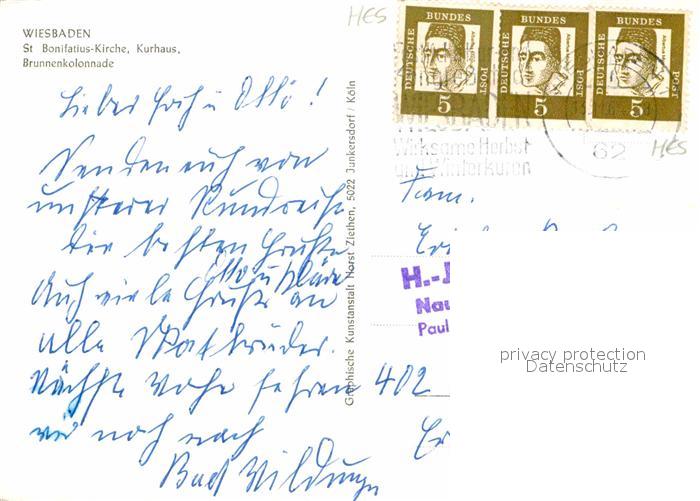 WIESBADEN
St Bonifatius-Kirche, Kurhaus,
Brunnenkolonnade
HES
DEUTSCHE BUNDES POST 5
DEUTSCHE BUNDES POST 5
DEUTSCHE BUNDES POST 5
Wirksame Herbst
und Winterkuren
62
HES
Graphische Kunstanstalt Horst Ziethen, 5022 Junkersdorf / Köln
Lieber u Otto!
Senden euch von
unserer Rundreise
die besten Grüße
Otto u
Auch viele Grüße an
alle Skatbrüder.
Nächste Woche fahren
wir noch nach
Bad Wildungen
Fam.
H.-
Nau
Paul
402
privacy protection
Datenschutz